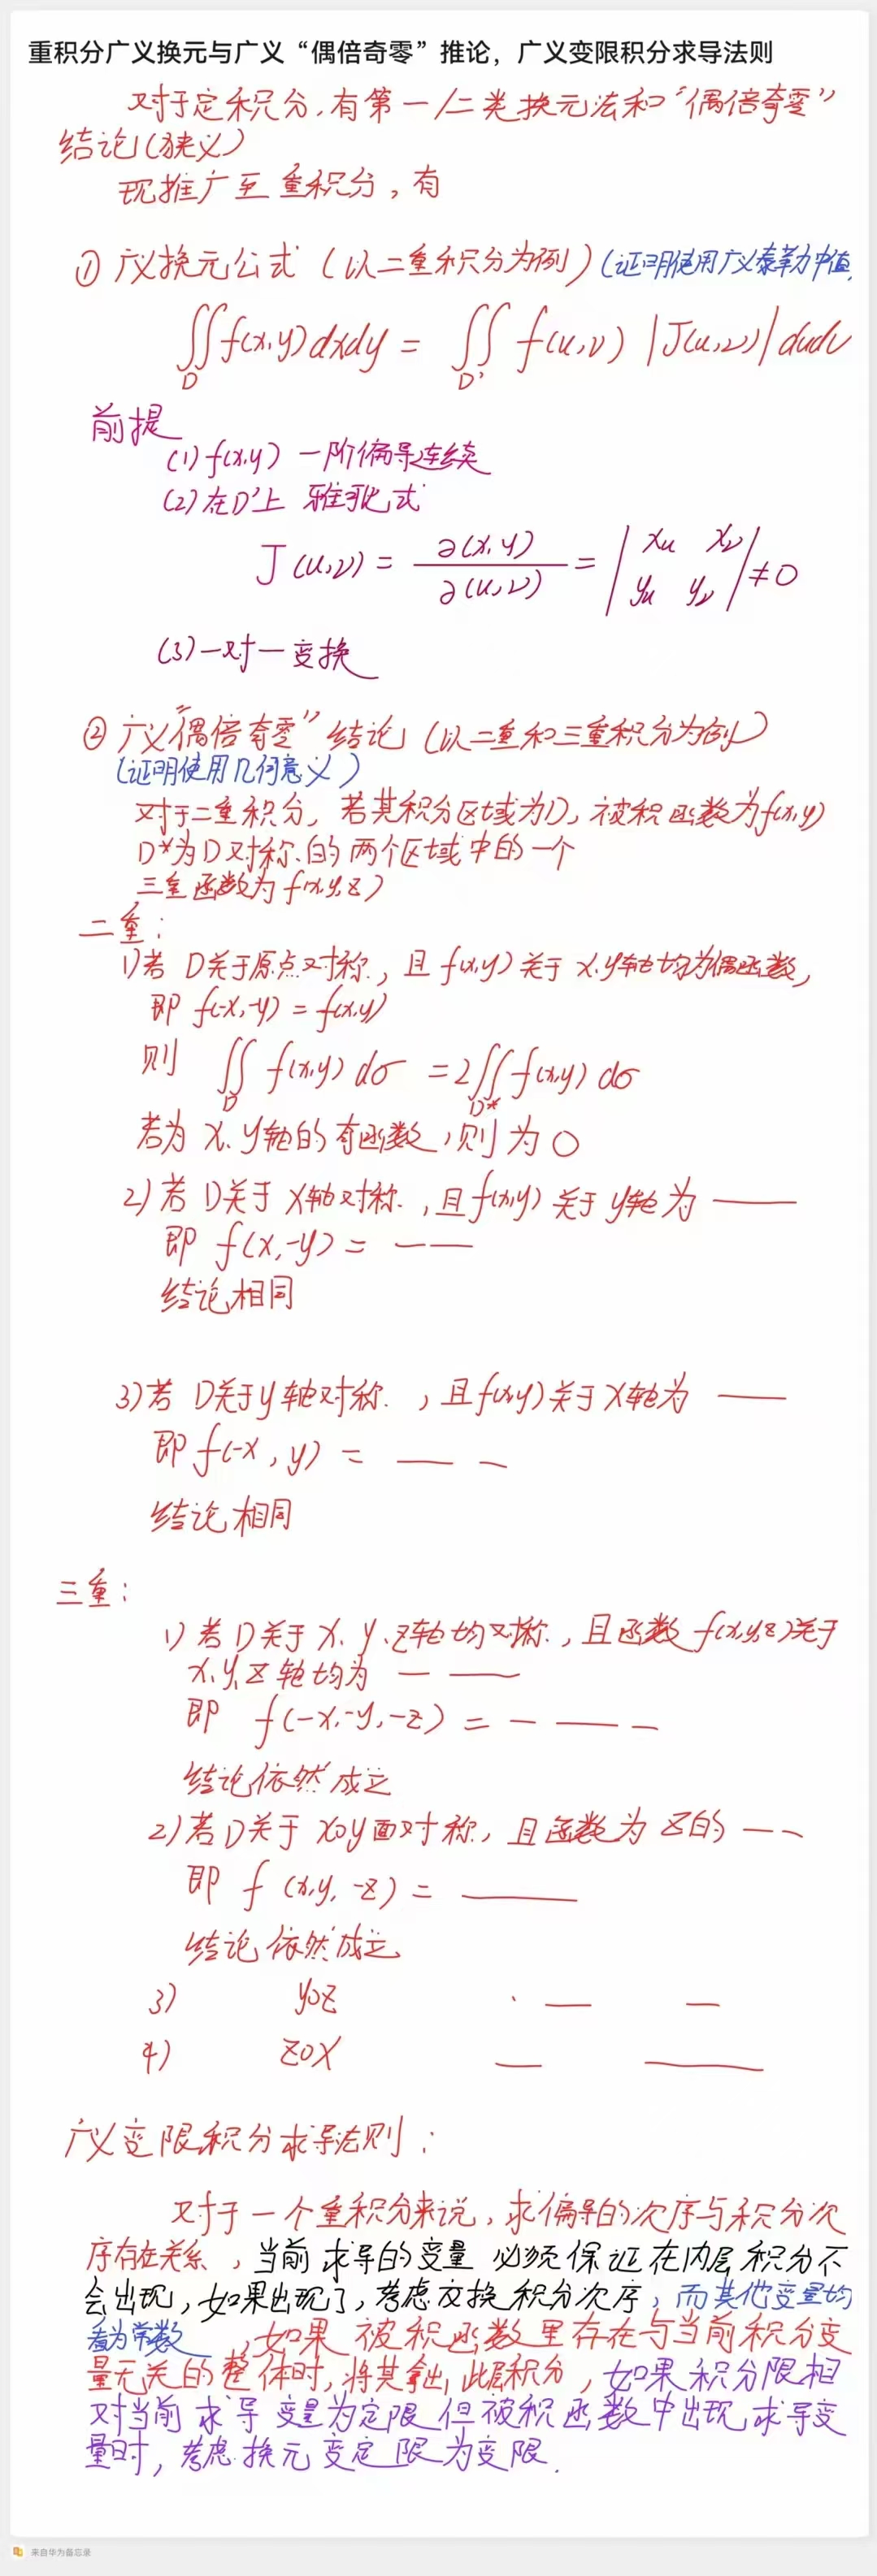 重积分广义换元与广义“偶倍奇零”推论，广义变限积分求导法则
对于定积分，有第一/二类换元法和“偶倍奇零”
结论(狭义)
现推广至重积分，有
① 广义换元公式（以二重积分为例）(证明使用广义泰勒中值
∬f(x,y)dxdy = ∬ f(u,v) |J(u,v)| dudv
D D'
前提
(1) f(x,y) 一阶偏导连续
(2) 在D'上 雅可比式
J(u,v) = ∂(x,y)/∂(u,v) = |xu xv; yu yv| ≠ 0
(3) 一对一变换
② 广义“偶倍奇零”结论（以二重和三重积分为例）
(证明使用几何意义)
对于二重积分，若其积分区域为D，被积函数为f(x,y)
D*为D对称的两个区域中的一个
三重函数为f(x,y,z)
二重：
1)若 D关于原点对称，且 f(x,y)关于 x.y轴均为偶函数，
即 f(-x,-y) = f(x,y)
则 ∬ f(x,y) dσ = 2∬ f(x,y) dσ
D D*
若为 x、y轴的奇函数，则为0
2) 若 D关于 x轴对称，且f(x,y)关于 y轴为 ——
即 f(x,-y) = — ——
结论相同
3)若 D关于y轴对称，且f(x,y)关于x轴为 ——
即 f(-x,y) = —— —
结论相同
三重：
1) 若 D关于 x、y、z轴均对称，且函数 f(x,y,z)关于
x,y,z轴均为 — ——
即 f(-x,-y,-z) = — —— —
结论依然成立
2) 若 D关于 xoy面对称，且函数为 z的 — —
即 f (x,y,-z) = ———
结论依然成立
3) yoz — —
4) zox — ———
广义变限积分求导法则：
对于一个重积分来说，求偏导的次序与积分次
序存在关系，当前求导的变量必须保证在内层积分不
会出现，如果出现了，考虑交换积分次序，而其他变量均
看为常数，如果被积函数里存在与当前积分变
量无关的整体时，将其拿出此层积分，如果积分限相
对当前求导变量为定限但被积函数中出现求导变
量时，考虑换元变定限为变限.
来自华为备忘录